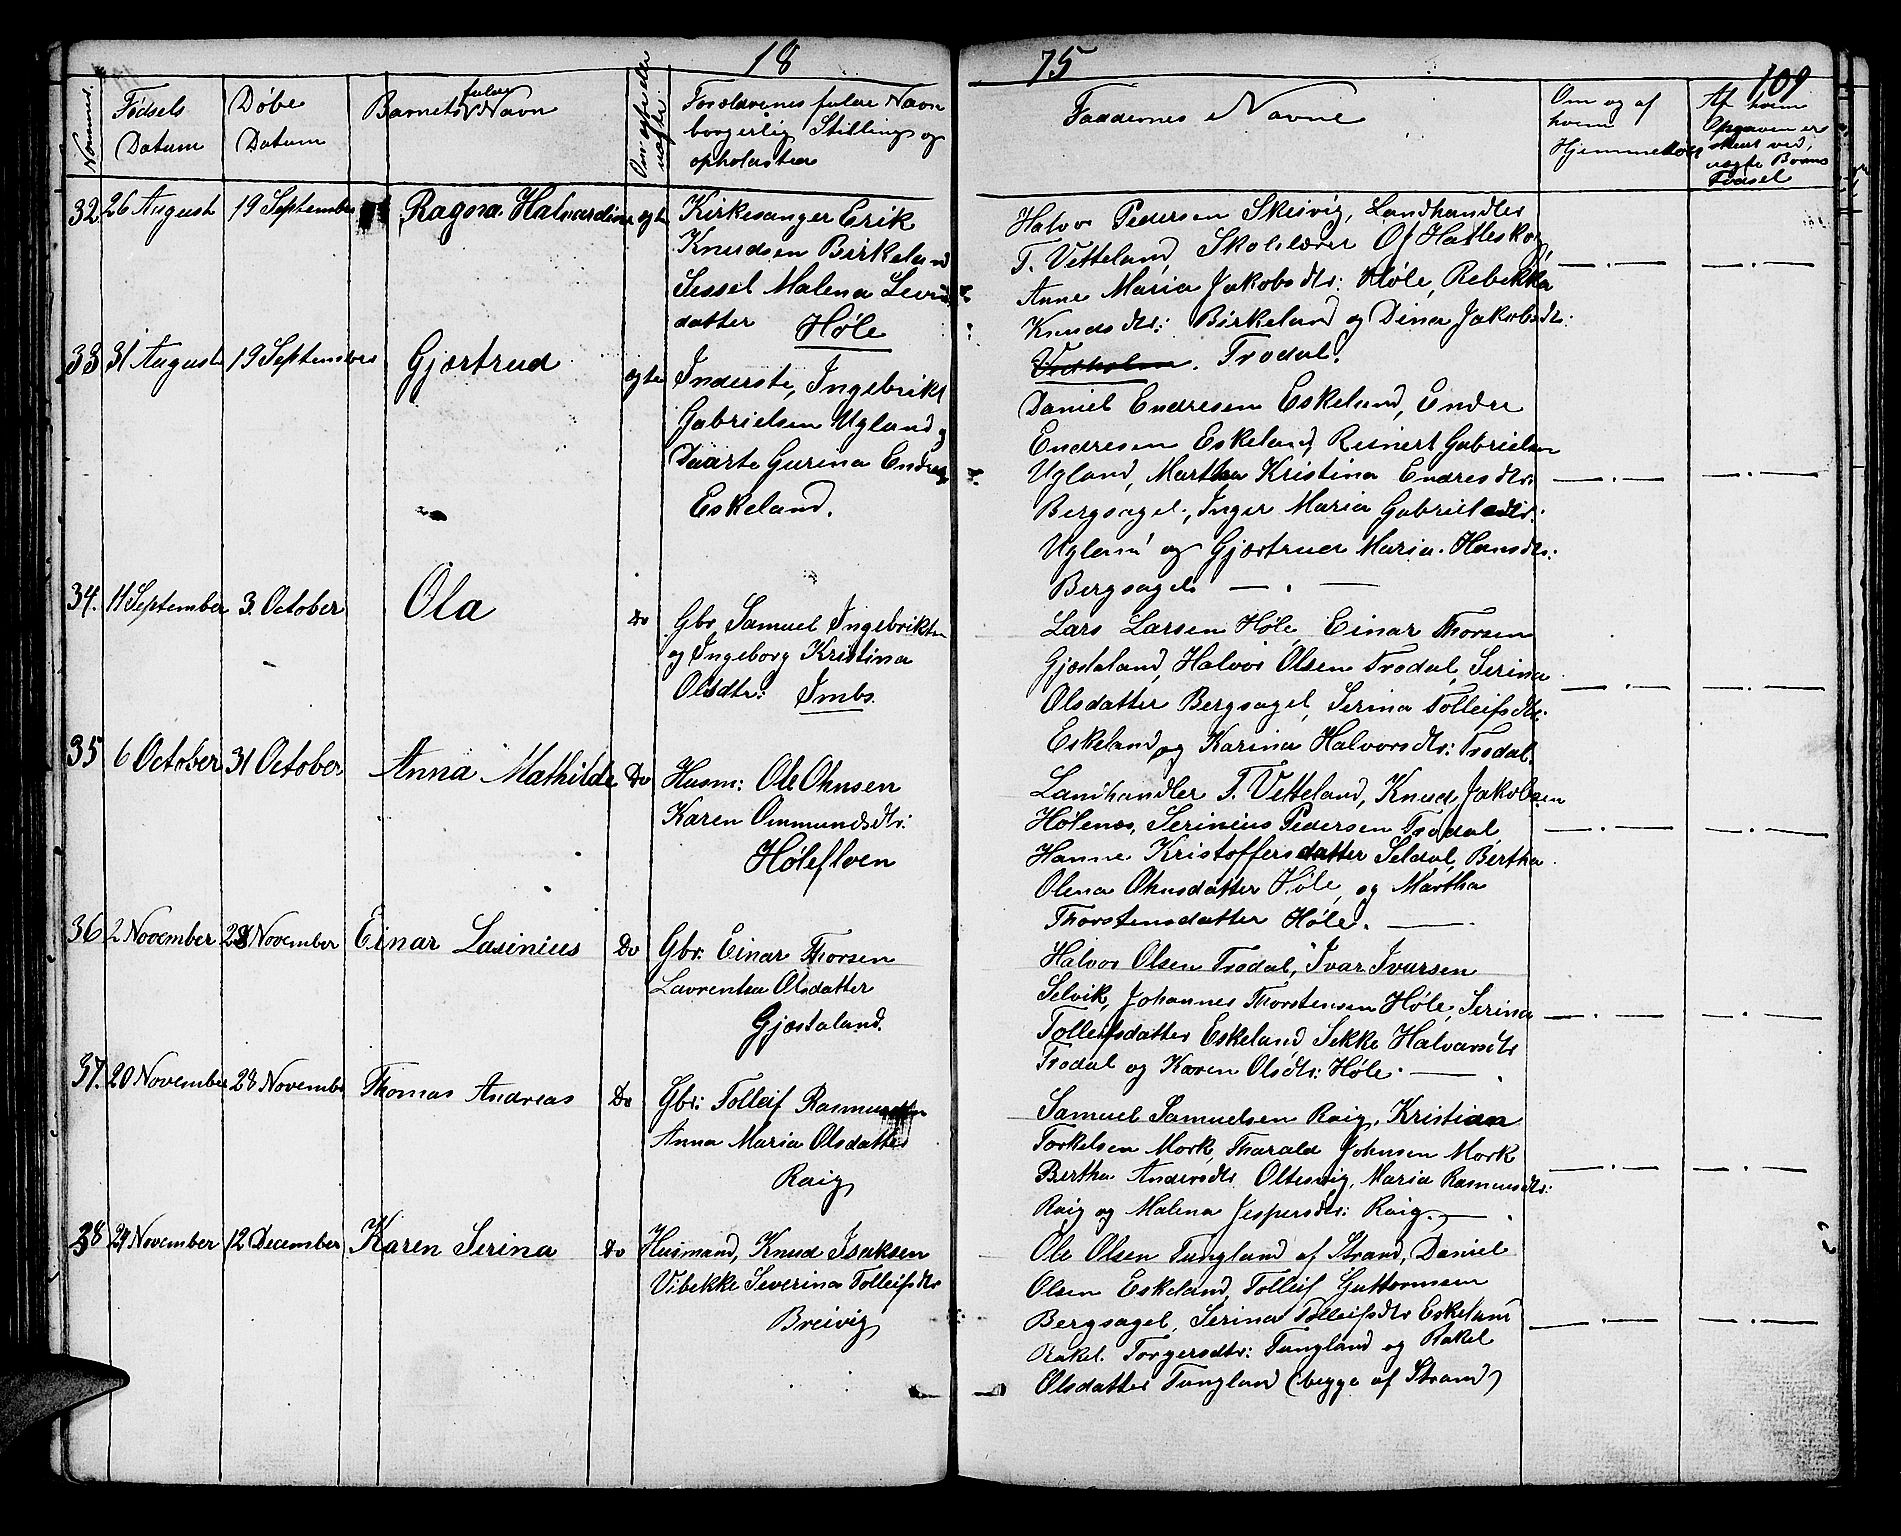 18 75
109
Nommer. Fødsels Datum Døbe Datum Barnets fulde Navn Om ægte eller uægte. Forældrenes fulde Navn borgerlig Stilling og opholdsted
Faddernes Navne Om og af hvem Hjemmedøbt Af hvem Opgaven er skeet ved, uægte Børns Fødsel
32 26 August 19 September Ragna Halvardine ægte Kirkesanger Erik
Knudsen Birkeland
Sessel Malena
datter Høle
Halvor Pedersen Skeivig, Landhandler
T. Vetteland, Skolelærer O Hatleskog,
Anne Maria Jakobsdtr: Høle, Rebekka
Knudsdtr: Birkeland og Dina Jakobsdtr:
Trodal.
33 31 August 19 September Gjærtrud ægte Inderste, Ingebrikt
Gabrielsen Ugland og
Daarte Gurina Endresd
Eskeland.
Daniel Endresen Eskeland, Endre
Endresen Eskeland, Reinert Gabrielsen
Ugland, Martha Kristina Endresdtr:
Bergsagel, Inger Maria Gabrielsdtr:
Ugland og Gjærtrued Maria Hansdtr:
Bergsagel — . —
34. 11 September 3. October Ola Do Gbr Samuel Ingebriktsen
og Ingeborg Kristina
Olsdtr: Imbs.
Lars Larsen Høle, Einar Thorsen
Gjæstaland, Halvor Olsen Trodal, Serina
Olsdatter Bergsagel, Serina Tolleifsdtr.
Eskeland og Karina Halvorsdtr: Trodal.
35 6 October 31 October Anna Mathilde Do Husm: Ole Ohnsen
Karen Ommundsdtr:
Høleflven
Landhandler T. Vetteland, Knud Jakobsen
Hølenes, Serinius Pedersen Trodal,
Hanne Kristoffersdatter Seldal, Bertha
Olena Ohnsdatter Høle, og Martha
Thorstensdatter Høle. —
36 2 November 28 November Einar Lasinius Do Gbr: Einar Thorsen
Lavrentsa Olsdatter
Gjæstaland.
Halvor Olsen Trodal, Ivar Ivarsen
Selvik, Johannes Thorstensen Høle, Serina
Tolleifsdatter Eskeland Sekke Halvarsdtr
Trodal og Karen Olsdtr: Høle. —
37. 20 November 28 November Thomas Andreas Do Gbr: Tolleif Rasmussen
Anna Maria Olsdatter
Raig
Samuel Samuelsen Raig, Kristian
Torkelsen Mork, Tharald Johnsen Mork
Bertha Andersdtr Oltesvig, Maria Rasmusdtr:
Raig og Malena Jespersdtr: Raig. —
38 29 November 12 December Karen Serina Do Husmand, Knud Isaksen
Vibekke Severina Tolleifsdtr
Breivig
Ole Olsen Tungland af Strand, Daniel
Olsen Eskeland, Tolleif Guttormsen
Bergsagel, Serina Tolleifsdtr Eskeland
Rakel Torgersdtr: Tungland og Rakel
Olsdatter Tungland (begge af Strand)